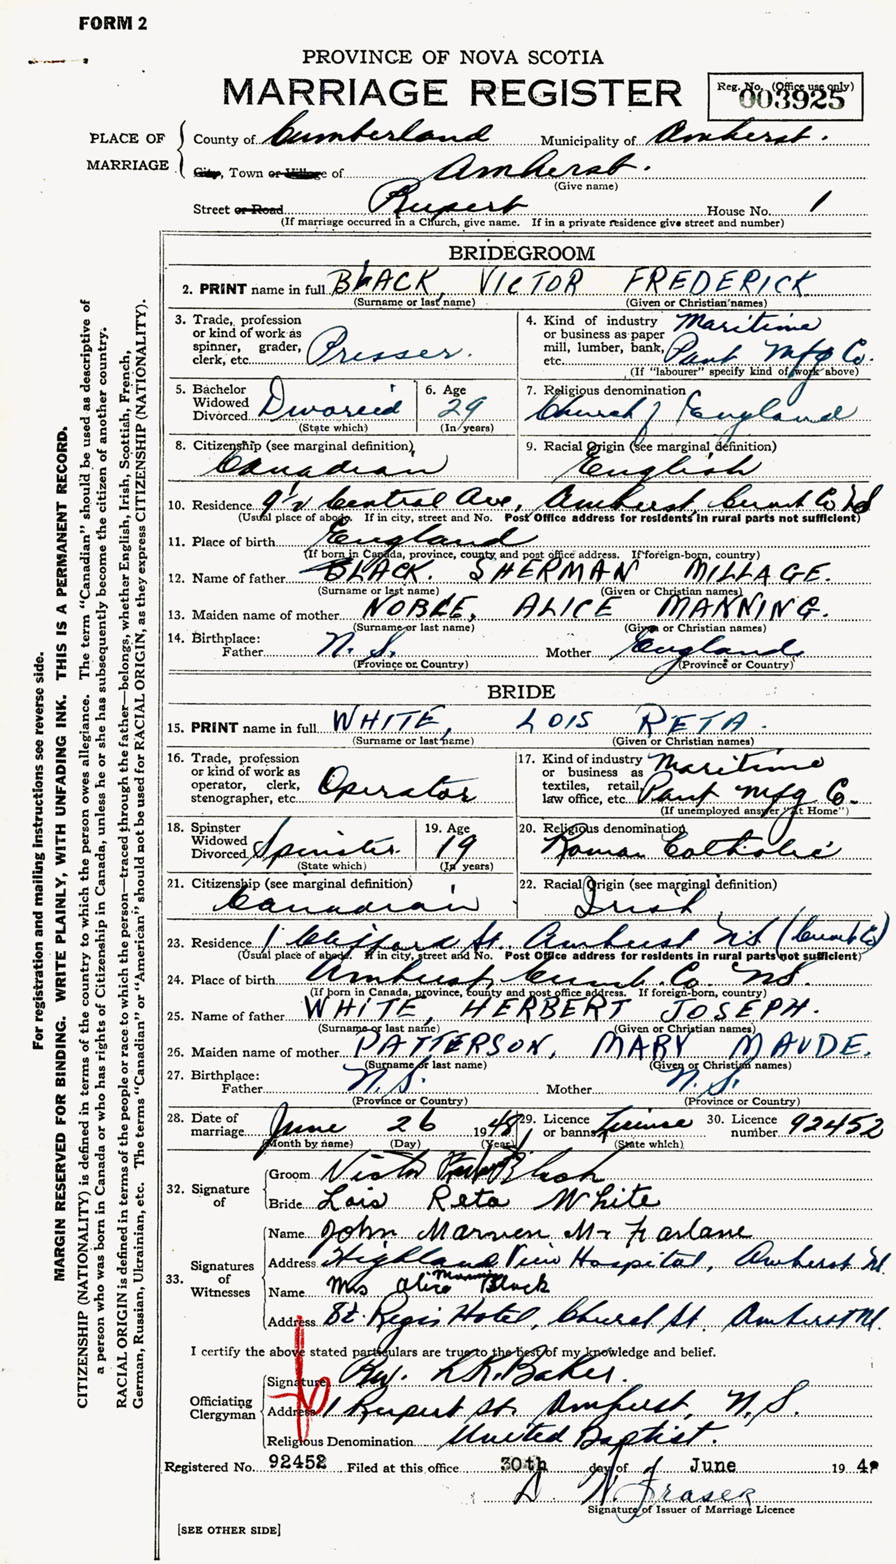 FORM 2
PROVINCE OF NOVA SCOTIA
MARRIAGE REGISTER
Reg. No. (Office use only)
003925
PLACE OF MARRIAGE
County of Cumberland Municipality of Amherst.
City, Town or Village of Amherst.
(Give name)
Street or Road Rupert House No. 1
(If marriage occurred in a Church, give name. If in a private residence give street and number)
BRIDEGROOM
2. PRINT name in full BLACK, VICTOR FREDERICK
(Surname or last name) (Given or Christian names)
3. Trade, profession or kind of work as spinner, grader, clerk, etc. Presser.
4. Kind of industry or business as paper mill, lumber, bank, etc. Maritime Pant Mfg Co.
(If "labourer" specify kind of work above)
5. Bachelor Widowed Divorced Divorced
(State which)
6. Age 29
(In years)
7. Religious denomination Church of England
8. Citizenship (see marginal definition) Canadian
9. Racial Origin (see marginal definition) English
10. Residence Central Ave, Amherst, Cumb Co NS
(Usual place of abode. If in city, street and No. Post Office address for residents in rural parts not sufficient)
11. Place of birth England
(If born in Canada, province, county, and post office address. If foreign-born, country)
12. Name of father BLACK. SHERMAN MILLAGE.
(Surname or last name) (Given or Christian names)
13. Maiden name of mother NOBLE, ALICE MANNING.
(Surname or last name) (Given or Christian names)
14. Birthplace:
Father N. S. Mother England
(Province or Country) (Province or Country)
BRIDE
15. PRINT name in full WHITE, LOIS RETA.
(Surname or last name) (Given or Christian names)
16. Trade, profession or kind of work as operator, clerk, stenographer, etc. Operator
17. Kind of industry or business as textiles, retail, law office, etc. Maritime Pant Mfg Co.
(If unemployed answer "At Home")
18. Spinster Widowed Divorced Spinster
(State which)
19. Age 19
(In years)
20. Religious denomination Roman Catholic
21. Citizenship (see marginal definition) Canadian
22. Racial Origin (see marginal definition) Irish
23. Residence 1 Clifford St. Amherst NS (Cumb Co)
(Usual place of abode. If in city, street and No. Post Office address for residents in rural parts not sufficient)
24. Place of birth Amherst, Cumb. Co. NS.
(If born in Canada, province, county and post office address. If foreign-born, country)
25. Name of father WHITE, HERBERT JOSEPH.
(Surname or last name) (Given or Christian names)
26. Maiden name of mother PATTERSON, MARY MAUDE.
(Surname or last name) (Given or Christian names)
27. Birthplace:
Father N.S. Mother N.S.
(Province or Country) (Province or Country)
28. Date of marriage June 26 1948
(Month by name) (Day) (Year)
29. Licence or banns License
(State which)
30. Licence number 92452
32. Signature of
Groom Victor Black
Bride Lois Reta White
33. Signatures of Witnesses
Name John Marven Mc Farlane
Address Highland View Hospital, Amherst NS.
Name Mrs Alice Manning Black
Address St. Regis Hotel, Church St. Amherst NS.
I certify the above stated particulars are true to the best of my knowledge and belief.
Officiating Clergyman
Signature Rev. L.R. Baker.
Address 1 Rupert St. Amherst, N. S.
Religious Denomination United Baptist.
Registered No. 92452 Filed at this office 30th day of June 19 48
D. W. Fraser
Signature of Issuer of Marriage Licence
[SEE OTHER SIDE]
For registration and mailing instructions see reverse side.
MARGIN RESERVED FOR BINDING. WRITE PLAINLY, WITH UNFADING INK. THIS IS A PERMANENT RECORD.
CITIZENSHIP (NATIONALITY) is defined in terms of the country to which the person owes allegiance. The term "Canadian" should be used as descriptive of
a person who was born in Canada or who has rights of Citizenship in Canada, unless he or she has subsequently become the citizen of another country.
RACIAL ORIGIN is defined in terms of the people or race to which the person—traced through the father—belongs, whether English, Irish, Scottish, French,
German, Russian, Ukrainian, etc. The terms "Canadian" or "American" should not be used for RACIAL ORIGIN, as they express CITIZENSHIP (NATIONALITY).